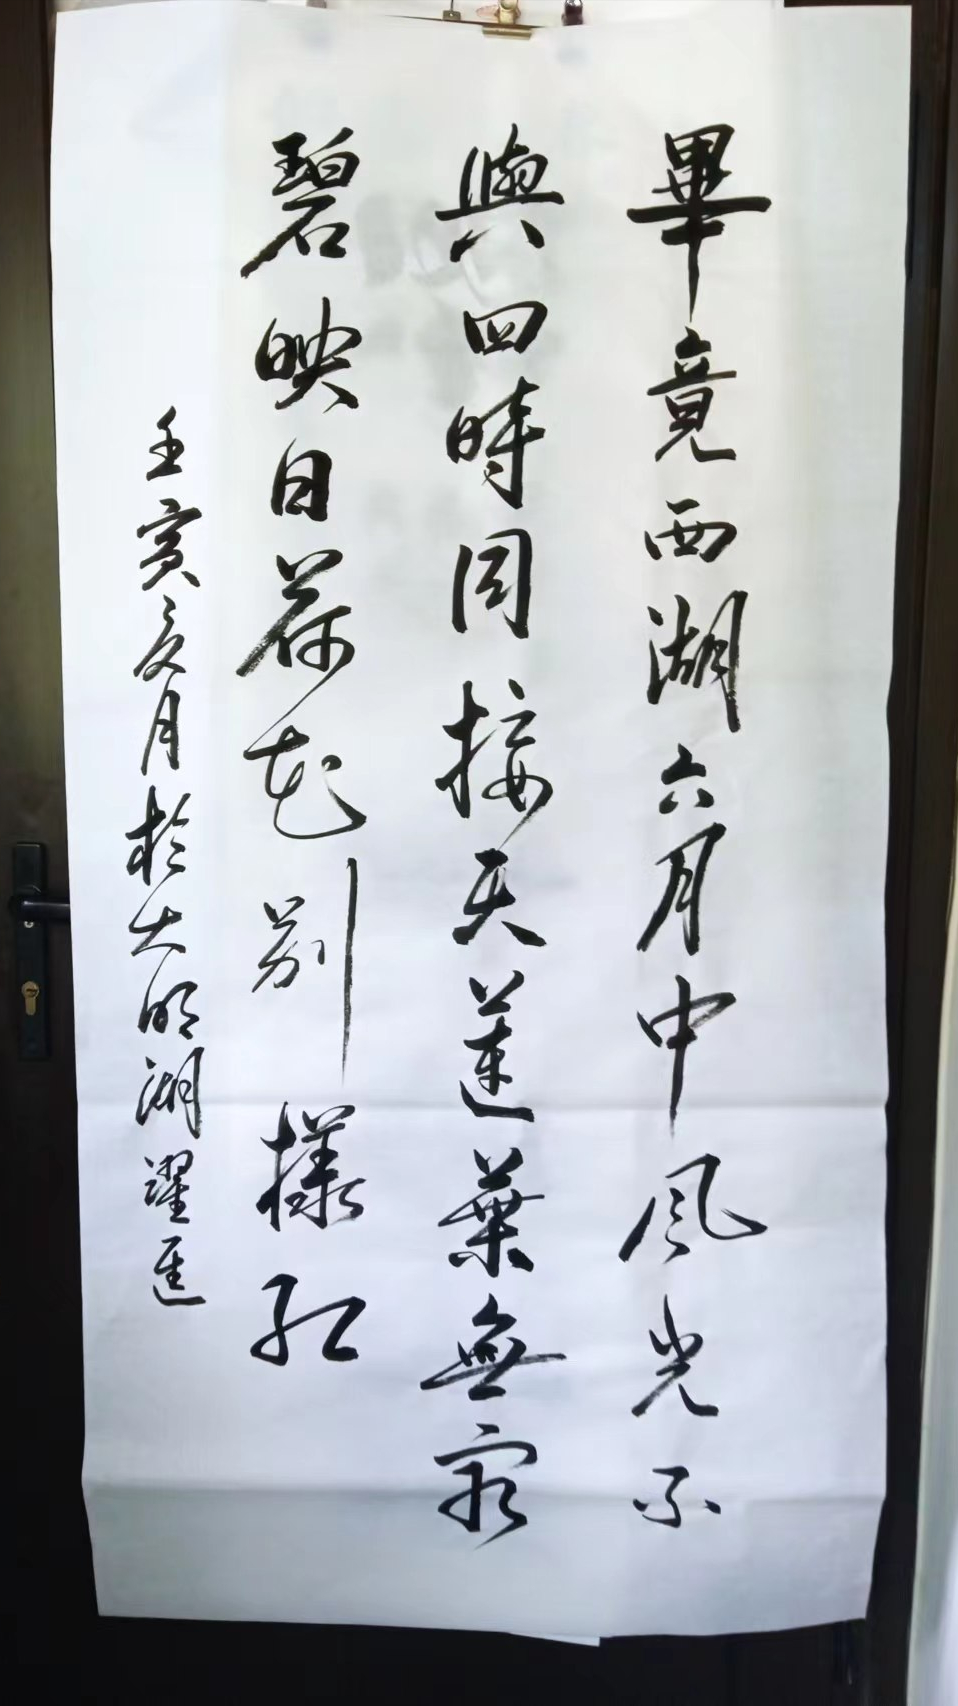 畢竟西湖六月中風光不
與四時同接天蓮葉無窮
碧映日荷花別樣紅
壬寅亥月於大明湖躍進